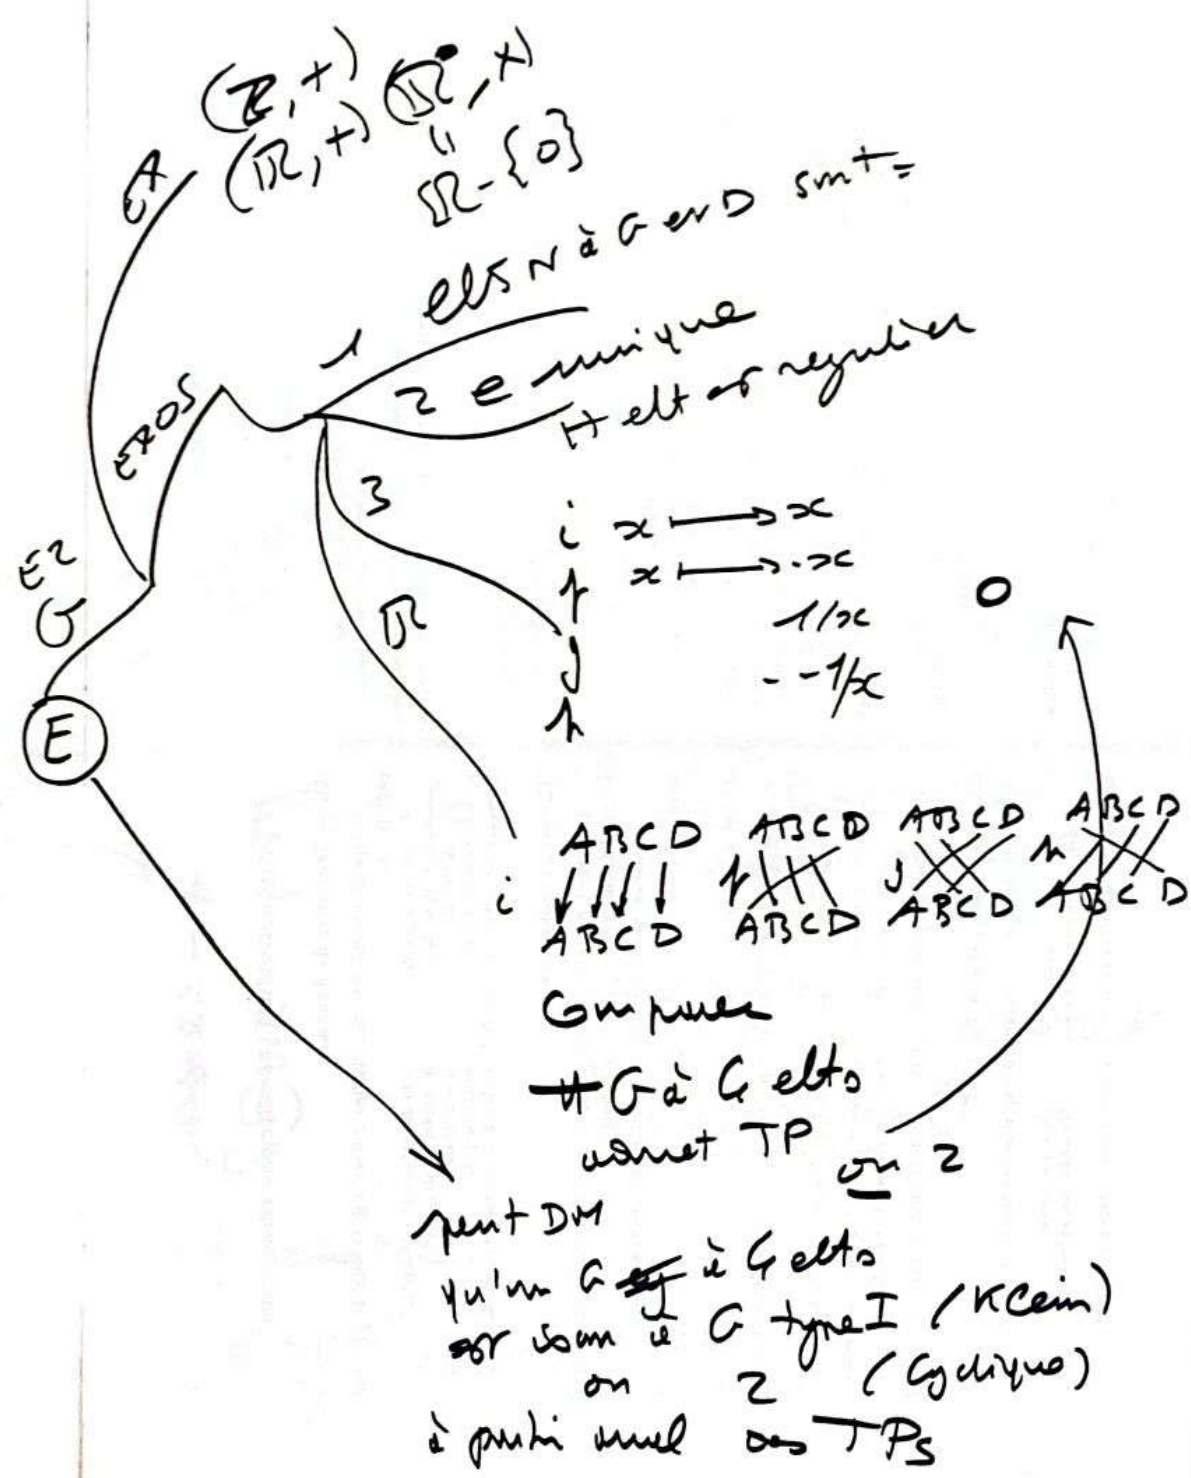 (Z, +) (R•, ×)
(R, +) = R-{0}
EXOS
1 elts N à G et D sont =
2 e unique
H elt est regulier
3
i x ⟼ x
f x ⟼ -x
g 1/x
h -1/x
R
E2
G
E
0
i ABCD f ABCD g ABCD h ABCD
ABCD ABCD ABCD ABCD
Composer
G à 4 elts
admet TP ou 2
peut DM
qu'un G à 4 elts
est isom à G type I (Klein)
ou 2 (Cyclique)
à TPs